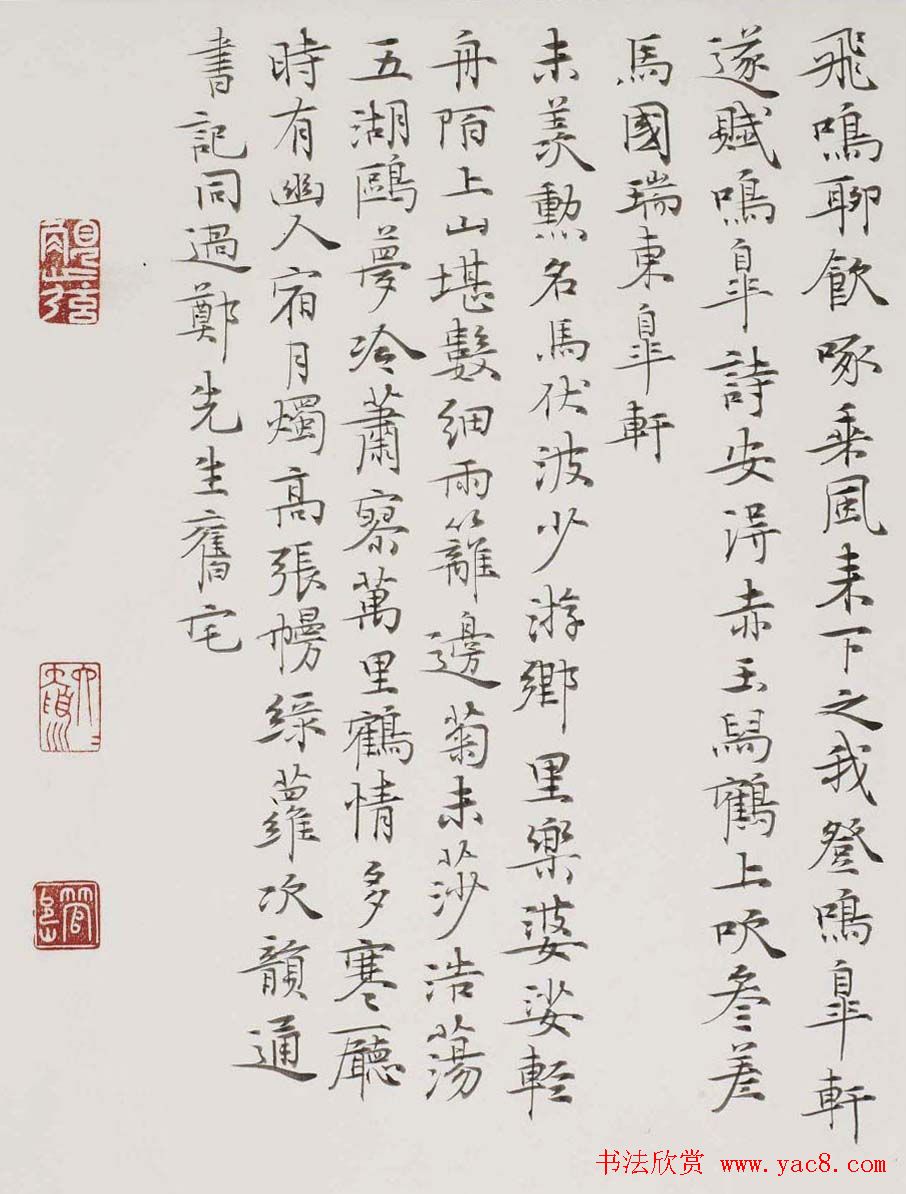 飛鳴聊飲啄乘風来下之我登鳴皐軒
遂賦鳴皐詩安得赤玉舄鶴上吹參差
馬國瑞東皐軒
未羨勲名馬伏波少游鄉里樂婆娑輕
舟陌上山堪數細雨籬邊菊未莎浩蕩
五湖鷗夢冷蕭寥萬里鶴情多寒廳
時有幽人宿月燭高張幌綠蘿次韻通
書記同過鄭先生舊宅
书法欣赏 www.yac8.com